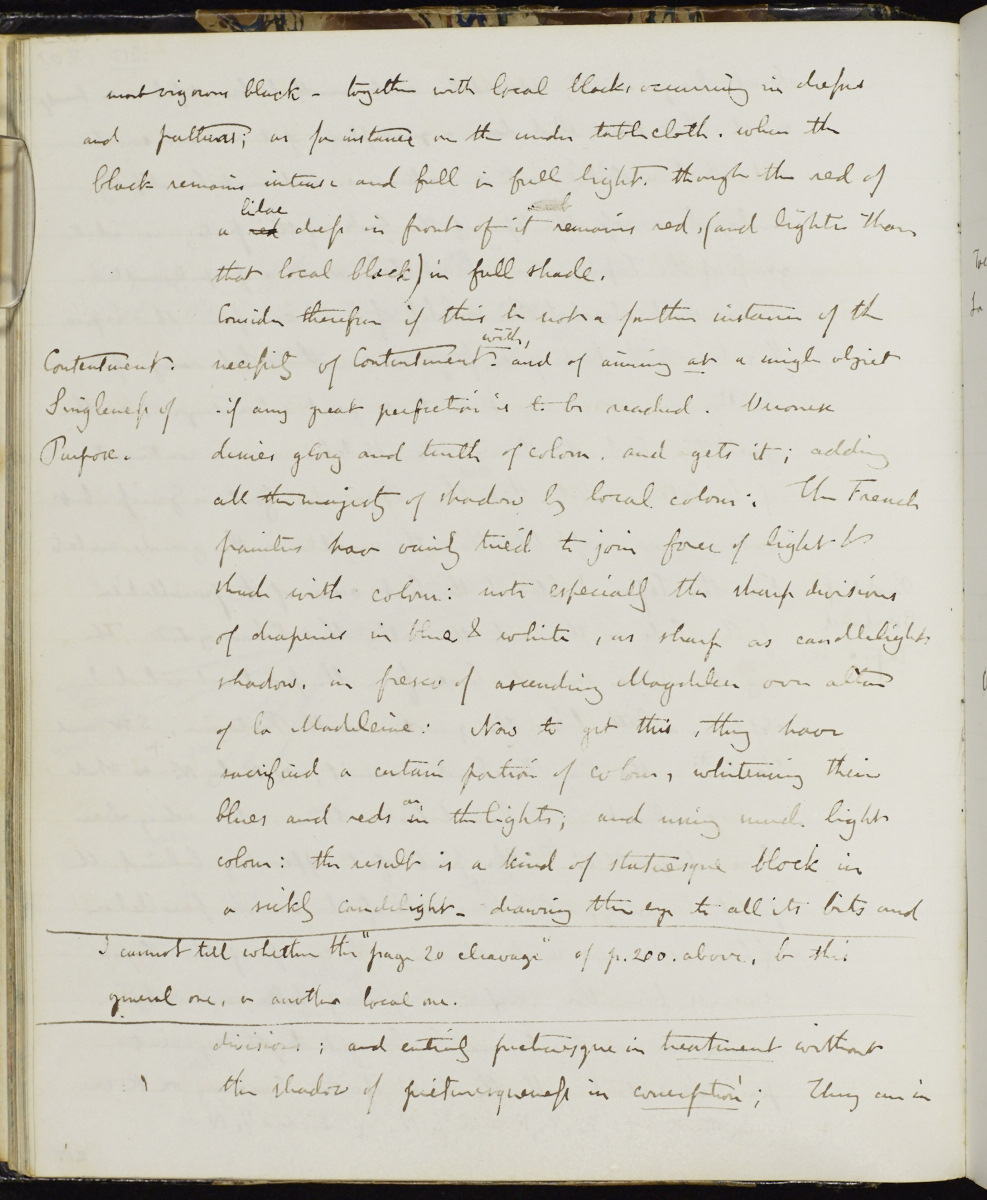 most vigorous black - together with local blacks occurring in dresses
and patterns; as for instance on the under tablecloth. when the
black remains intense and full in full light. though the red of
lilac
a red dress in front of it remains red, (and lighter than
that local black) in full shade.
Consider therefore if this be not a further instance of the
with,
Contentment. necessity of Contentment. and of aiming at a single object
Singleness of . if any great perfection is to be reached. Veronese
Purpose. desires glory and truth of colour. and gets it; adding
all the majesty of shadow by local colour: The French
painters have vainly tried to join force of light &
shade with colour: note especially the sharp divisions
of draperies in blue & white, as sharp as candlelight
shadow. in fresco of ascending Magdalen over altar
of la Madeleine: Now to get this, they have
sacrificed a certain portion of colour, whitening their
blues and reds in the lights; and using much light
colour: the result is a kind of statuesque block in
a sickly candlelight - drawing the eye to all its bits and
I cannot tell whether the "page 20 cleavage" of p. 200. above, be this
general one, or another local one.
divisions; and entirely picturesque in treatment without
the shadow of picturesqueness in conception; They are in